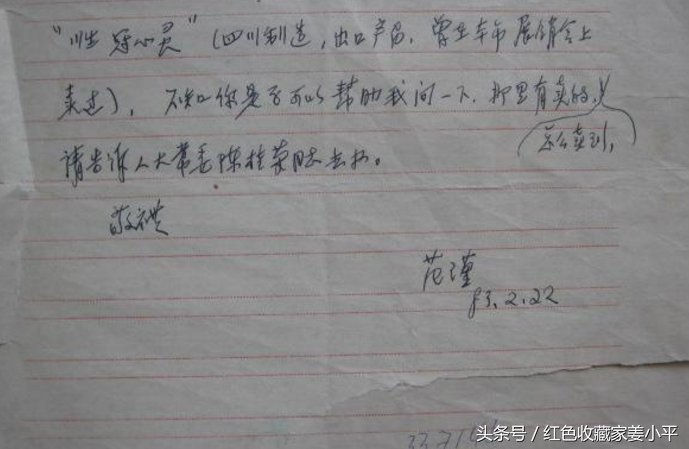 冠心灵”(四川制造,出口产品,曾在本市展销会上
卖过),不知你是否可以帮助我问一下,那里有卖的,
怎么卖到,
请告诉人大常委陈桂荣同志去办。
敬礼
范瑾
83.2.22
头条号/红色收藏家姜小平